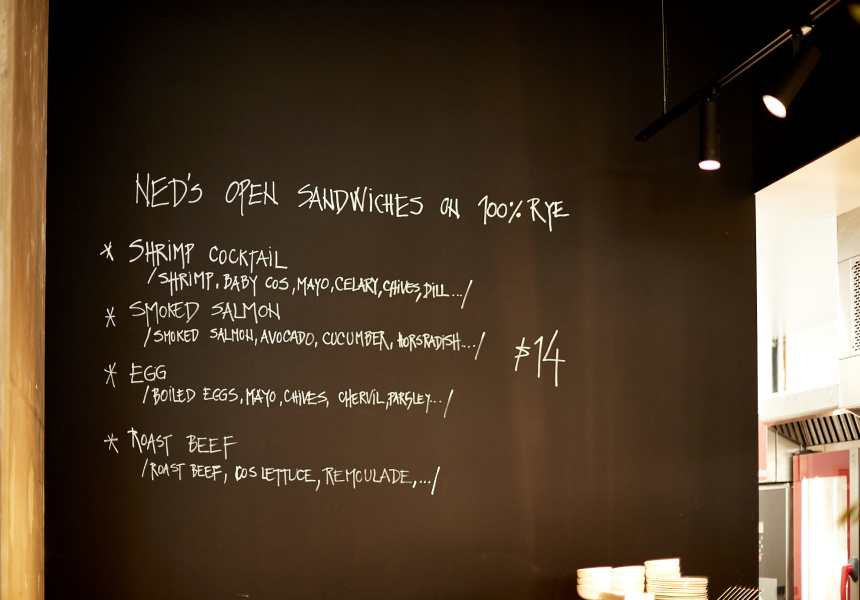 NED'S OPEN SANDWICHES ON 100% RYE
* SHRIMP COCKTAIL
/SHRIMP, BABY COS, MAYO, CELARY, CHIVES, DILL.../
* SMOKED SALMON
/SMOKED SALMON, AVOCADO, CUCUMBER, HORSRADISH.../
$14
* EGG
/BOILED EGGS, MAYO, CHIVES, CHERVIL, PARSLEY.../
* ROAST BEEF
/ROAST BEEF, COS LETTUCE, REMOULADE,.../